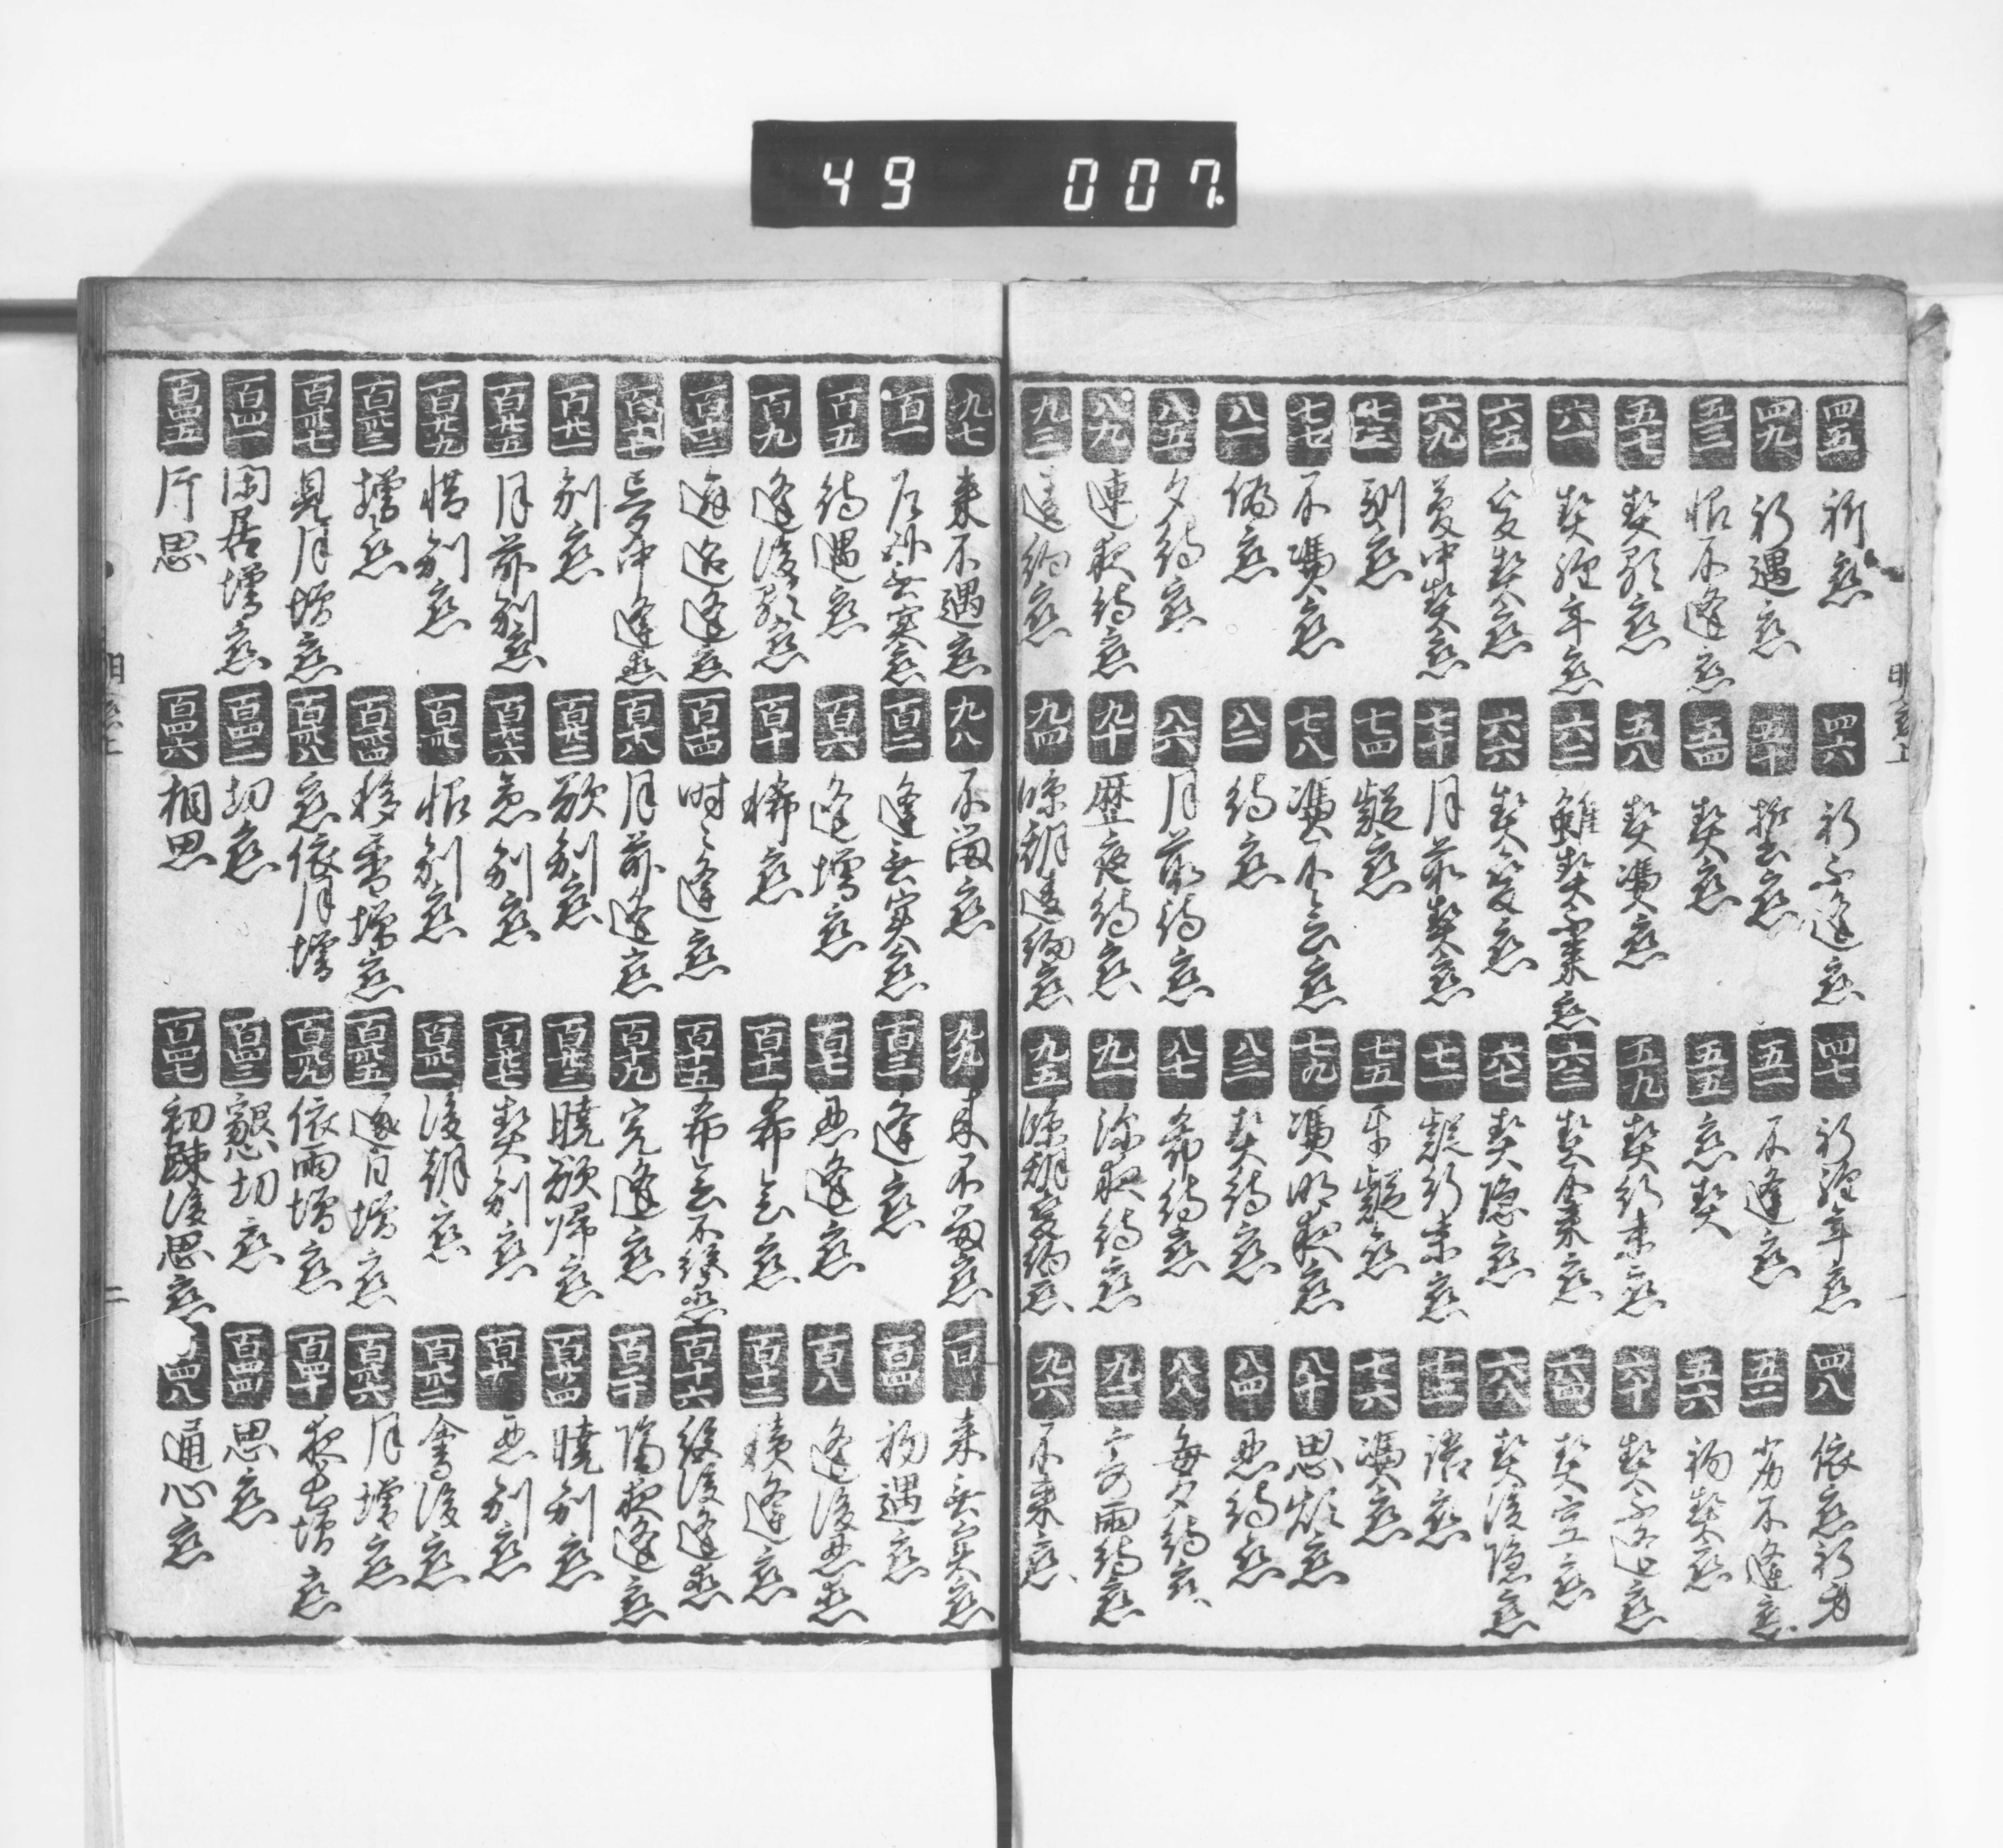 49 007
四五 祈恋
四六 祈不逢恋
四七 祈経年恋
四八 依恋祈身
四九 祈遇恋
五十 誓恋
五一 不逢恋
五二 不逢恋
五三 恨不逢恋
五四 契恋
五五 恋契
五六 初契恋
五七 契顕恋
五八 契憑恋
五九 契約来恋
六十 契不逢恋
六一 契経年恋
六二 雖契不来恋
六三 契不来恋
六四 契空恋
六五 変契恋
六六 契変恋
六七 契隠恋
六八 契後隠恋
六九 夢中契恋
七十 月前契恋
七一 疑行末恋
七二 誰恋
七三 馴恋
七四 疑恋
七五 半疑恋
七六 憑恋
七七 不憑恋
七八 憑不会恋
七九 憑明夜恋
八十 思煩恋
八一 偽恋
八二 待恋
八三 契待恋
八四 忍待恋
八五 夕待恋
八六 月前待恋
八七 希待恋
八八 毎夕待恋
八九 連夜待恋
九十 歴夜待恋
九一 深夜待恋
九二 寄雨待恋
九三 違約恋
九四 違約恋
九五 変約恋
九六 不来恋
九七 来不遇恋
九八 不留恋
九九 来不留恋
一百 来無実恋
百一 無実恋
百二 逢無実恋
百三 逢恋
百四 初遇恋
百五 待遇恋
百六 逢増恋
百七 忍逢恋
百八 逢後忍恋
百九 逢後顕恋
百十 稀恋
百十一 希会恋
百十二 積逢恋
百十三 邂逅逢恋
百十四 時々逢恋
百十五 希会不絶恋
百十六 絶後逢恋
百十七 夢中逢恋
百十八 月前逢恋
百十九 憂逢恋
百二十 隔夜逢恋
百廿一 別恋
百廿二 欲別恋
百廿三 暁欲帰恋
百廿四 暁別恋
百廿五 月前別恋
百廿六 急別恋
百廿七 契別恋
百廿八 忍別恋
百廿九 惜別恋
百卅 恨別恋
百卅一 後朝恋
百卅二 会後恋
百卅三 増恋
百卅四 移香増恋
百卅五 逐日増恋
百卅六 月増恋
百卅七 見月増恋
百卅八 恋依月増
百卅九 依雨増恋
百四十 夜増恋
百四一 閑居増恋
百四二 切恋
百四三 懇切恋
百四四 思恋
百四五 片思
百四六 相思
百四七 初疎後思恋
四八 通心恋
二